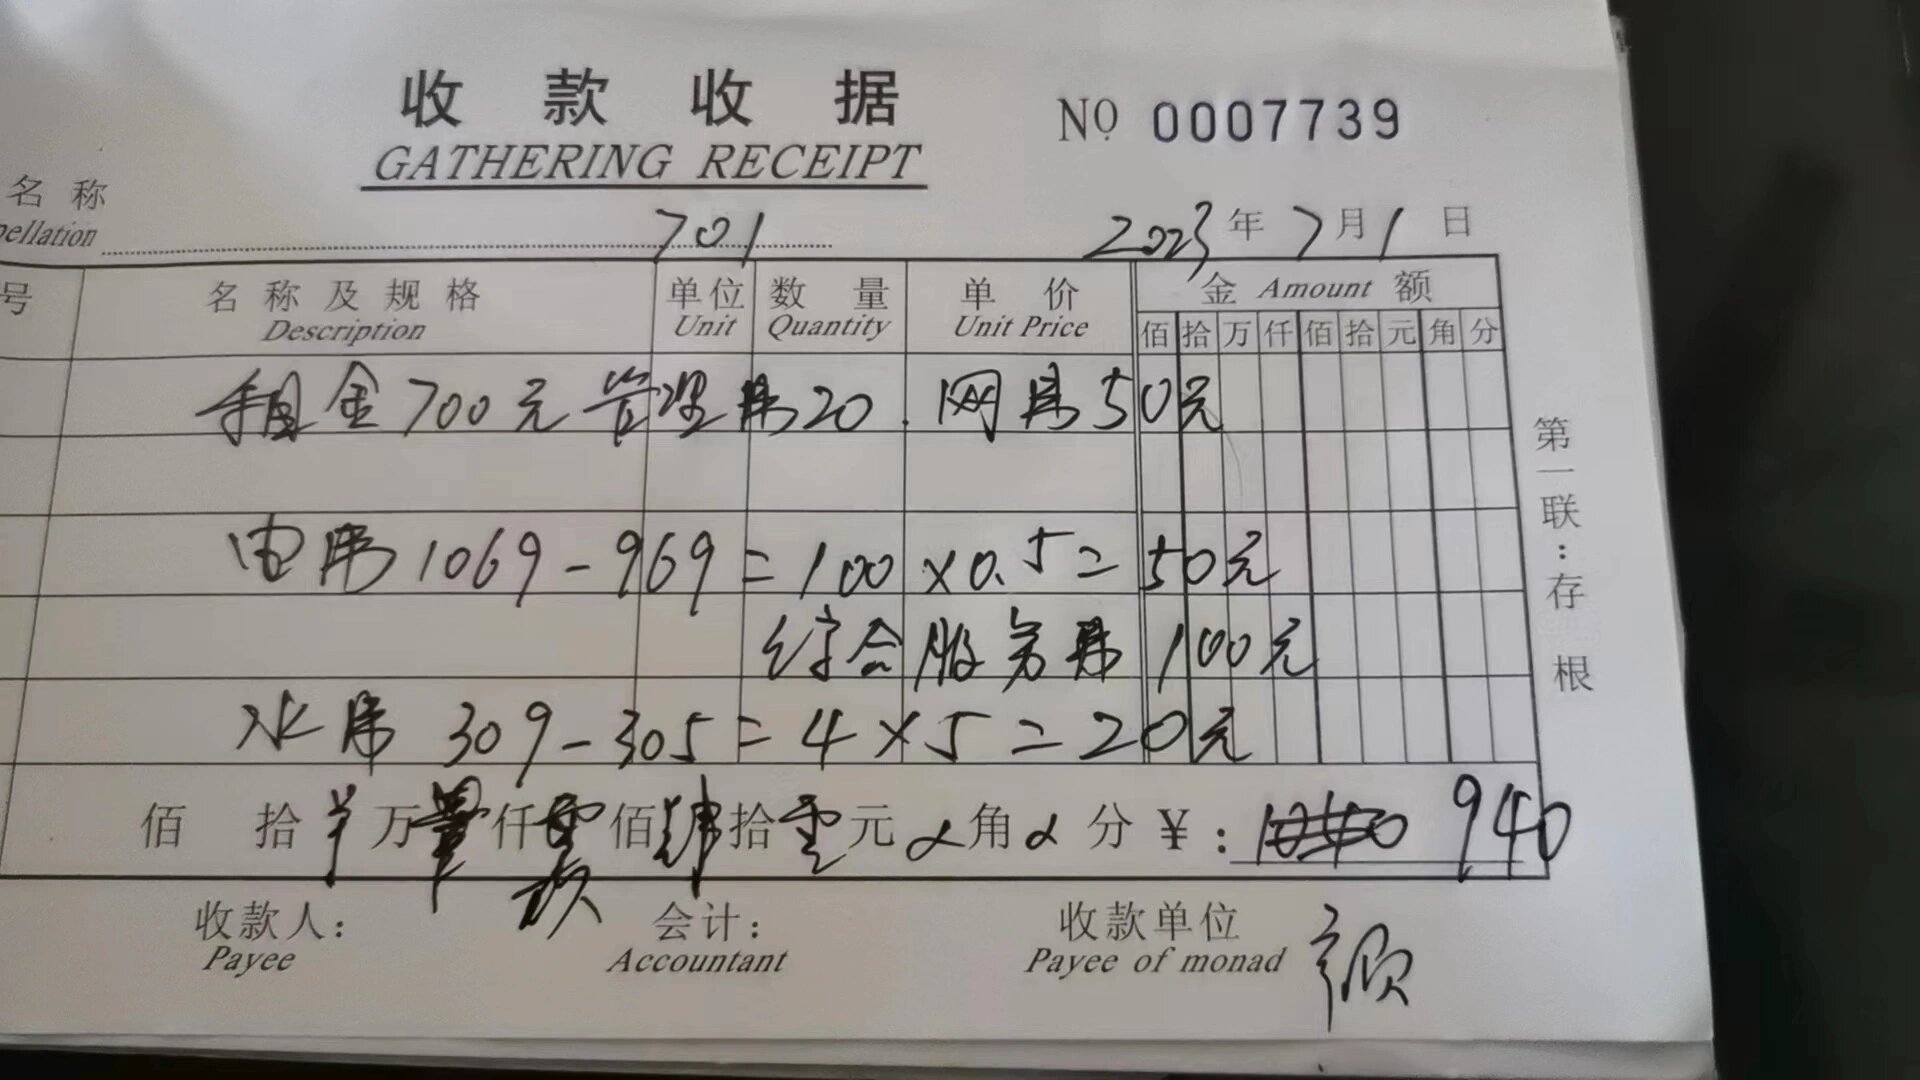 收款收据
GATHERING RECEIPT
NO 0007739
名称 701 2023年7月1日
pellation
号 名称及规格 单位 数量 单价 金 Amount 额
Description Unit Quantity Unit Price
佰 拾 万 仟 佰 拾 元 角 分
租金700元 管理费20. 网费50元
电费1069-969=100×0.5=50元
综合服务费100元
水费 309-305=4×5=20元
佰 拾 万 仟 佰 肆 拾 零 元 角 分 ¥: 940
玖
收款人: 会计: 收款单位
Payee Accountant Payee of monad
第一联:存根